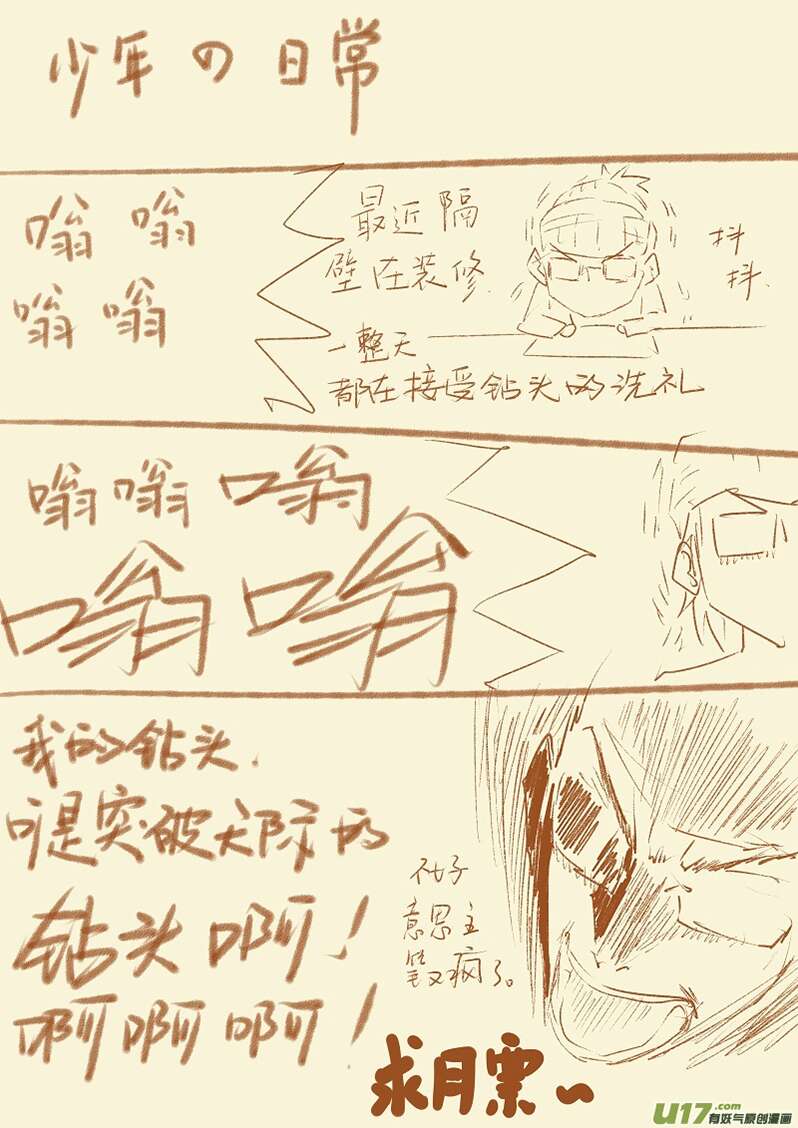 少年の日常
嗡 嗡
嗡 嗡
最近隔
壁在装修.
一整天
都在接受钻头的洗礼
抖
抖.
嗡 嗡 嗡
嗡 嗡
我的钻头.
可是突破天际的
钻头啊!
啊啊啊!
不好
意思主
笔又疯了。
求月票~
U17.com
有妖气原创漫画